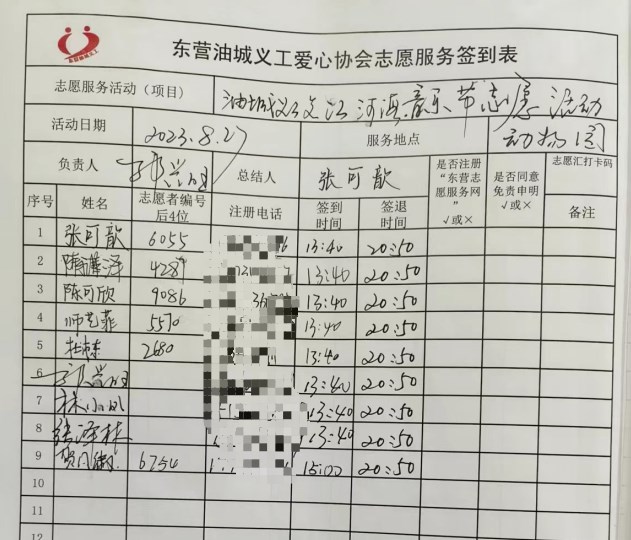 东营油城义工爱心协会志愿服务签到表
志愿服务活动（项目） 油城义工文江河海音乐节志愿活动
活动日期 2023.8.27 服务地点 动物园
负责人 总结人 张可歆 是否注册“东营志愿服务网” √或× 是否同意免责申明 √或× 志愿汇打卡码
序号 姓名 志愿者编号后4位 注册电话 签到时间 签退时间 备注
1 张可歆 6055 13:40 20:50
2 隋潇泽 4287 13:40 20:50
3 陈可欣 9086 13:40 20:50
4 师艺菲 5570 13:40 20:50
5 杜栋 2680 13:40 20:50
6 13:40 20:50
7 林小凤 13:40 20:50
8 张泽林 13:40 20:50
9 6754 15:00 20:50
10
11
12